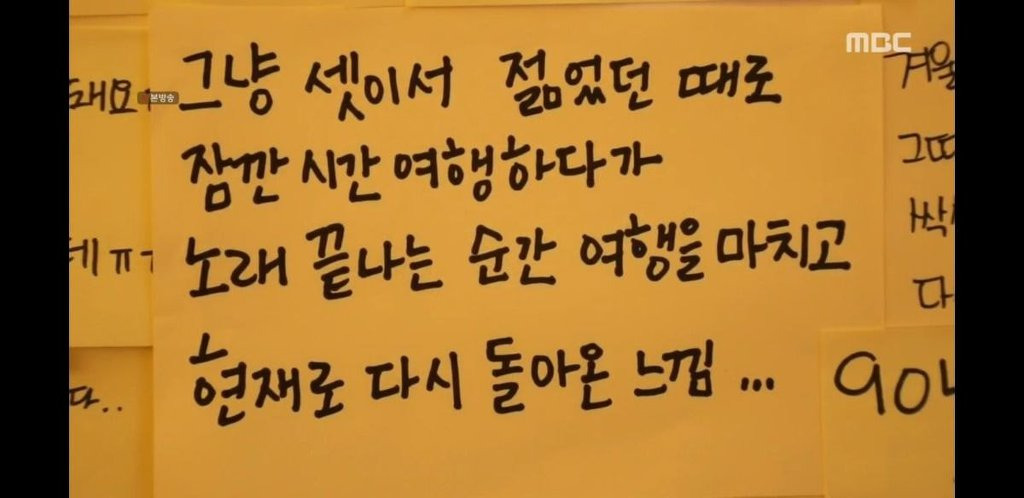 MBC
본방송
그냥 셋이서 젊었던 때로
잠깐 시간 여행하다가
노래 끝나는 순간 여행을 마치고
현재로 다시 돌아온 느낌 ...
돼요
테 ㅠㅠ
다..
겨울
그때
싹
다
90